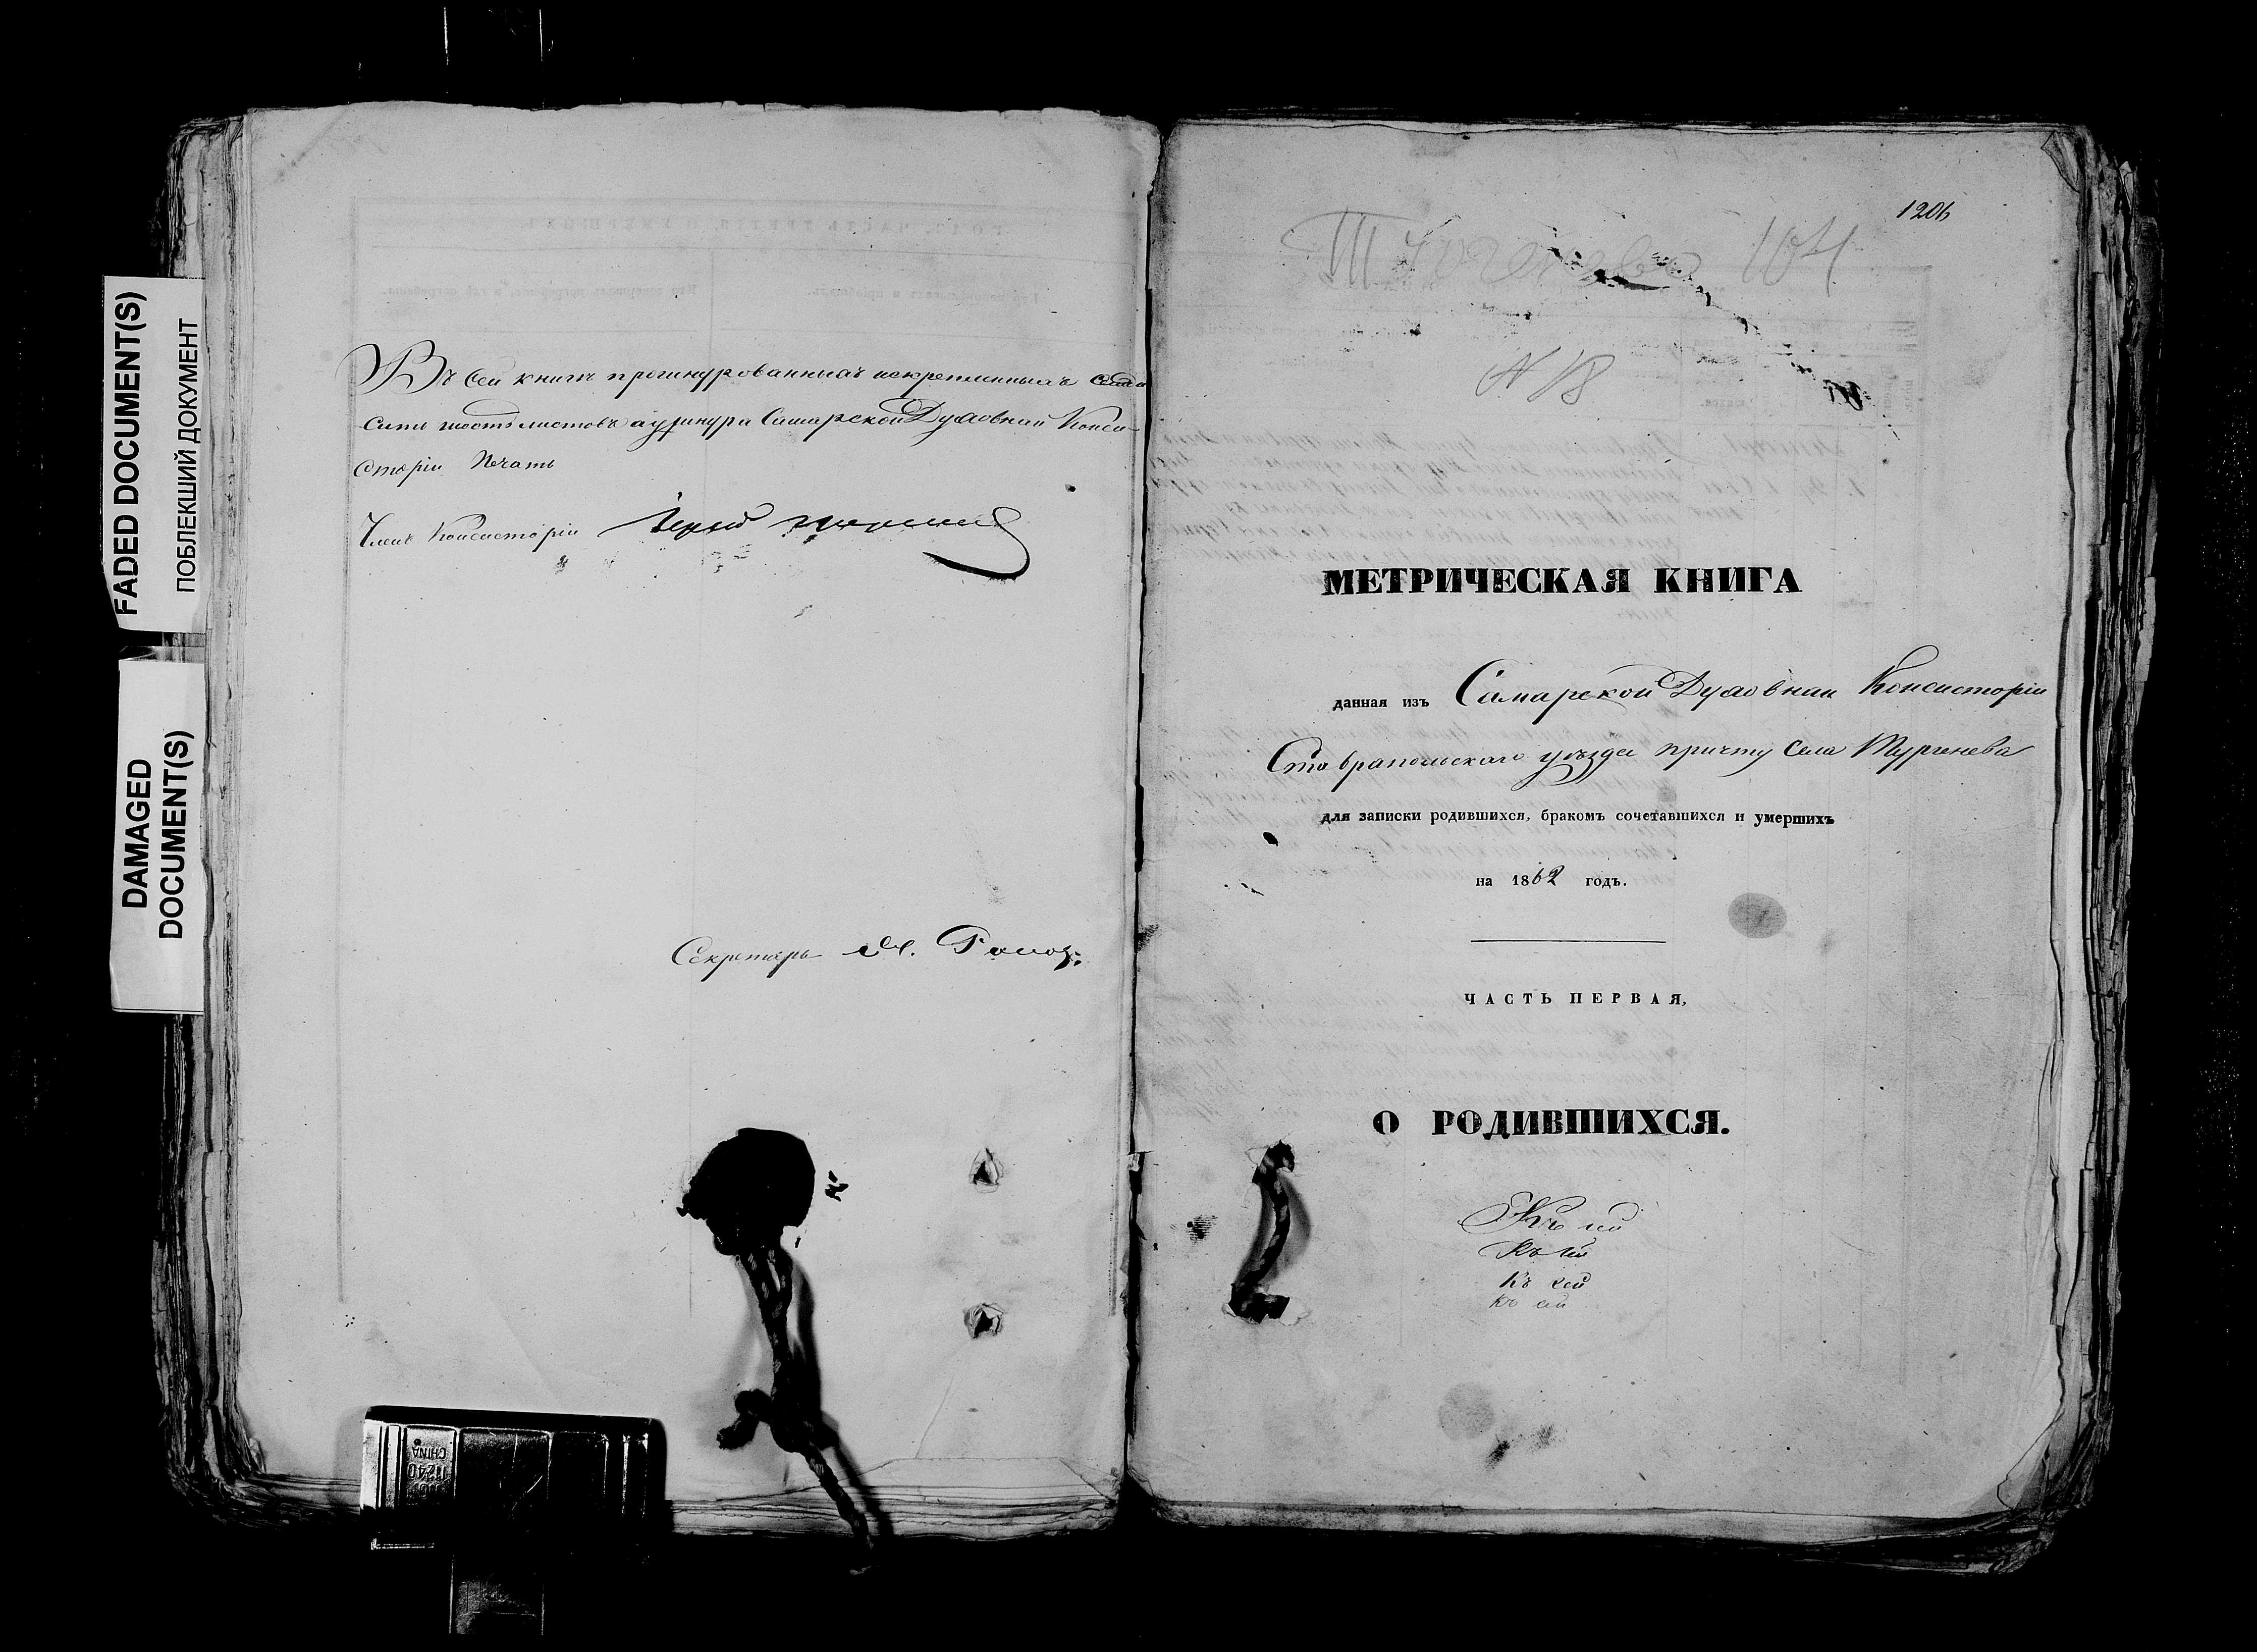 FADED DOCUMENT(S)
ПОБЛЕКШИЙ ДОКУМЕНТ
DAMAGED
DOCUMENT(S)
Въ сей книгѣ прошнурованныхъ искрепленныхъ семь
сятъ шесть листовъ ау шнура Самарской Духовной Конси-
сторіи Печать
Членъ Консисторіи Іерей
Секретарь
CHINA
11240
1206
Тургенево 104
N 18
МЕТРИЧЕСКАЯ КНИГА
данная изъ Самарской Духовной Консисторіи
Ставропольскаго уѣзда причту села Тургенева
для записки родившихся, бракомъ сочетавшихся и умершихъ
на 1862 годъ.
ЧАСТЬ ПЕРВАЯ,
О РОДИВШИХСЯ.
Къ сей
Къ сей
Къ сей
Къ сей